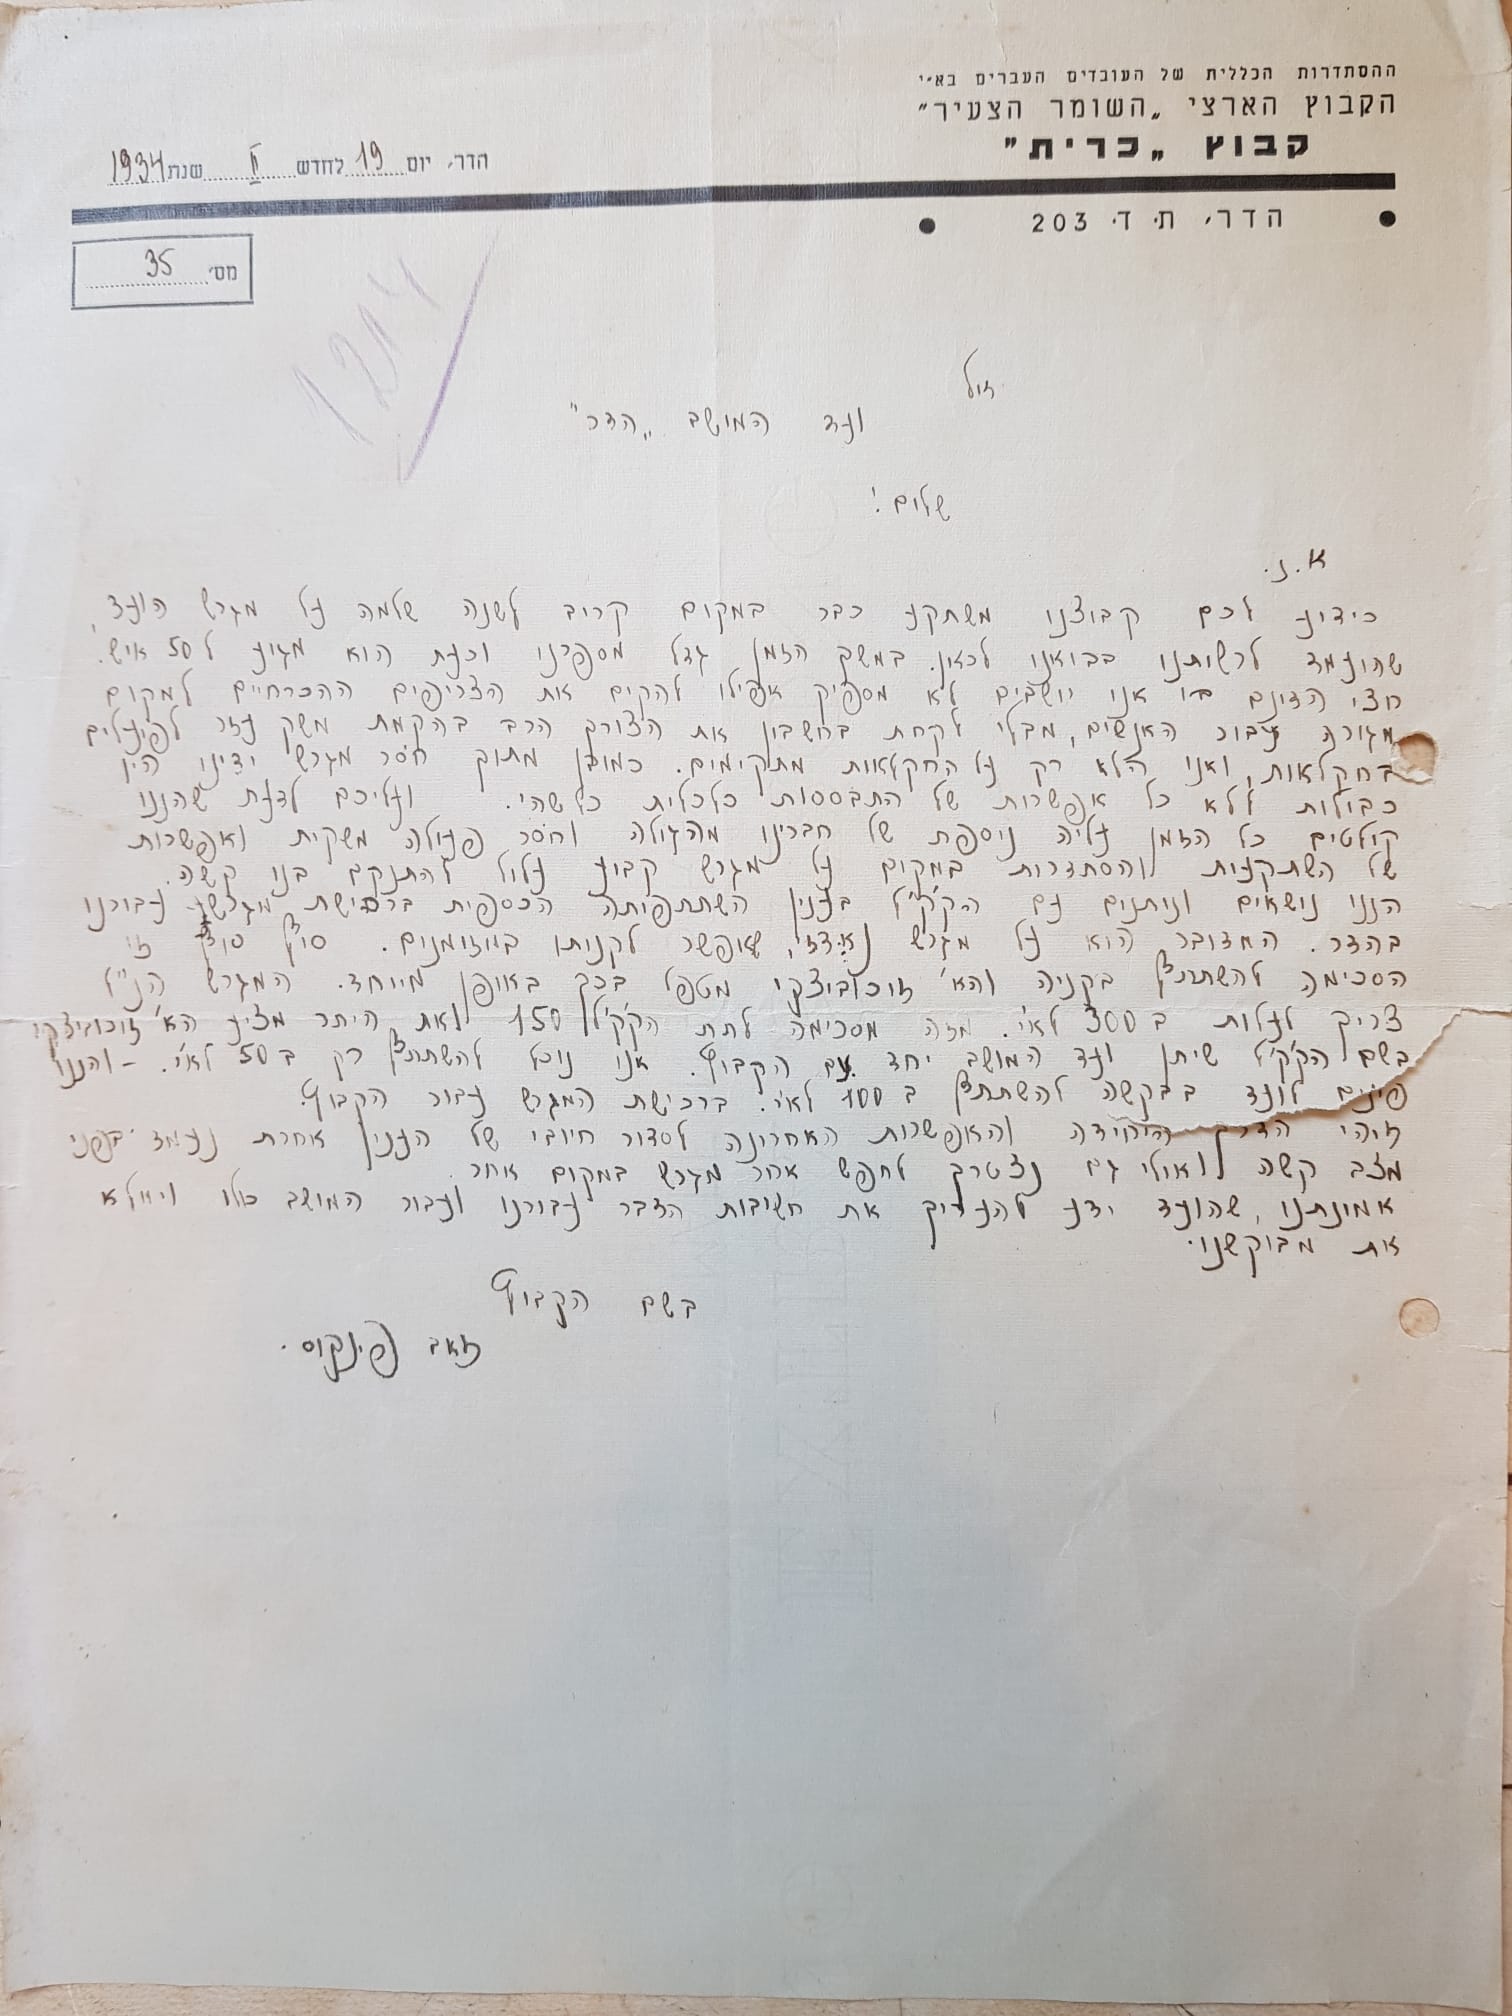 ההסתדרות הכללית של העובדים העברים בא״י
הקבוץ הארצי „השומר הצעיר״
קבוץ „כרית״
הדר, יום 19 לחדש II שנת 1934
הדר, ת. ד. 203
מס׳ 35
1214
ועד המושב „הדר״
שלום!
א. נ.
כידוע לכם קבוצנו משתקע כבר במקום קריב לשנה שלמה על מגרש הועד,
שהועמד לרשותנו בבואנו לכאן. במשך הזמן גדל מספרנו וכעת הוא מגיע ל 50 איש.
חצי הדונם בו אנו יושבים לא מספיק אפילו להקים את הצריפים ההכרחיים למקום
מגורה עבור האנשים, מבלי לקחת בחשבון את הצורך הרב בהקמת משק עזר לפועלים
בחקלאות, ואנו הלא רק על החקלאות מתקימים. כמובן מתוך חסר מגרש ידינו הין
כבולות ללא כל אפשרות של התבססות כלכלית כלשהי. ועליכם לדעת שהננו
קולטים כל הזמן עליה נוספת של חברינו מהגולה וחסר פעולה משקית ואפשרות
של השתקעות והסתדרות במקום על מגרש קבוע עלול להתנקם בנו קשה.
הננו נושאים ונותנים עם הקק״ל בענין השתתפותה הכספית ברכישת מגרש עבורנו
בהדר. המדובר הוא על מגרש שאפשר לקנותו במזומנים. זו
הסכימה להשתתף בקניה והא׳ זוכוביצקי מטפל בכך באופן מיוחד. המגרש הנ״ל
צריך לעלות ב 300 לא״י. מזה מסכימה לתת הקק״ל 150 ואת היתר מציע הא׳ זוכוביצקי
בשם הקק״ל שיתן ועד המושב יחד עם הקבוץ. אנו נוכל להשתתף רק ב 50 לא״י. – והננו
פונים לועד בבקשה להשתתף ב 100 לא״י. ברכישת המגרש עבור הקבוץ.
זוהי הדרך היחידה והאפשרות האחרונה לסדור חיובי של הענין אחרת נעמד בפני
מצב קשה ואולי גם נצטרך לחפש אחר מגרש במקום אחר.
אמונתנו, שהועד ידע להעריך את חשיבות הדבר עבורנו ועבור המושב כולו וימלא
את מבוקשנו.
בשם הקבוץ
זאב פינקוס.